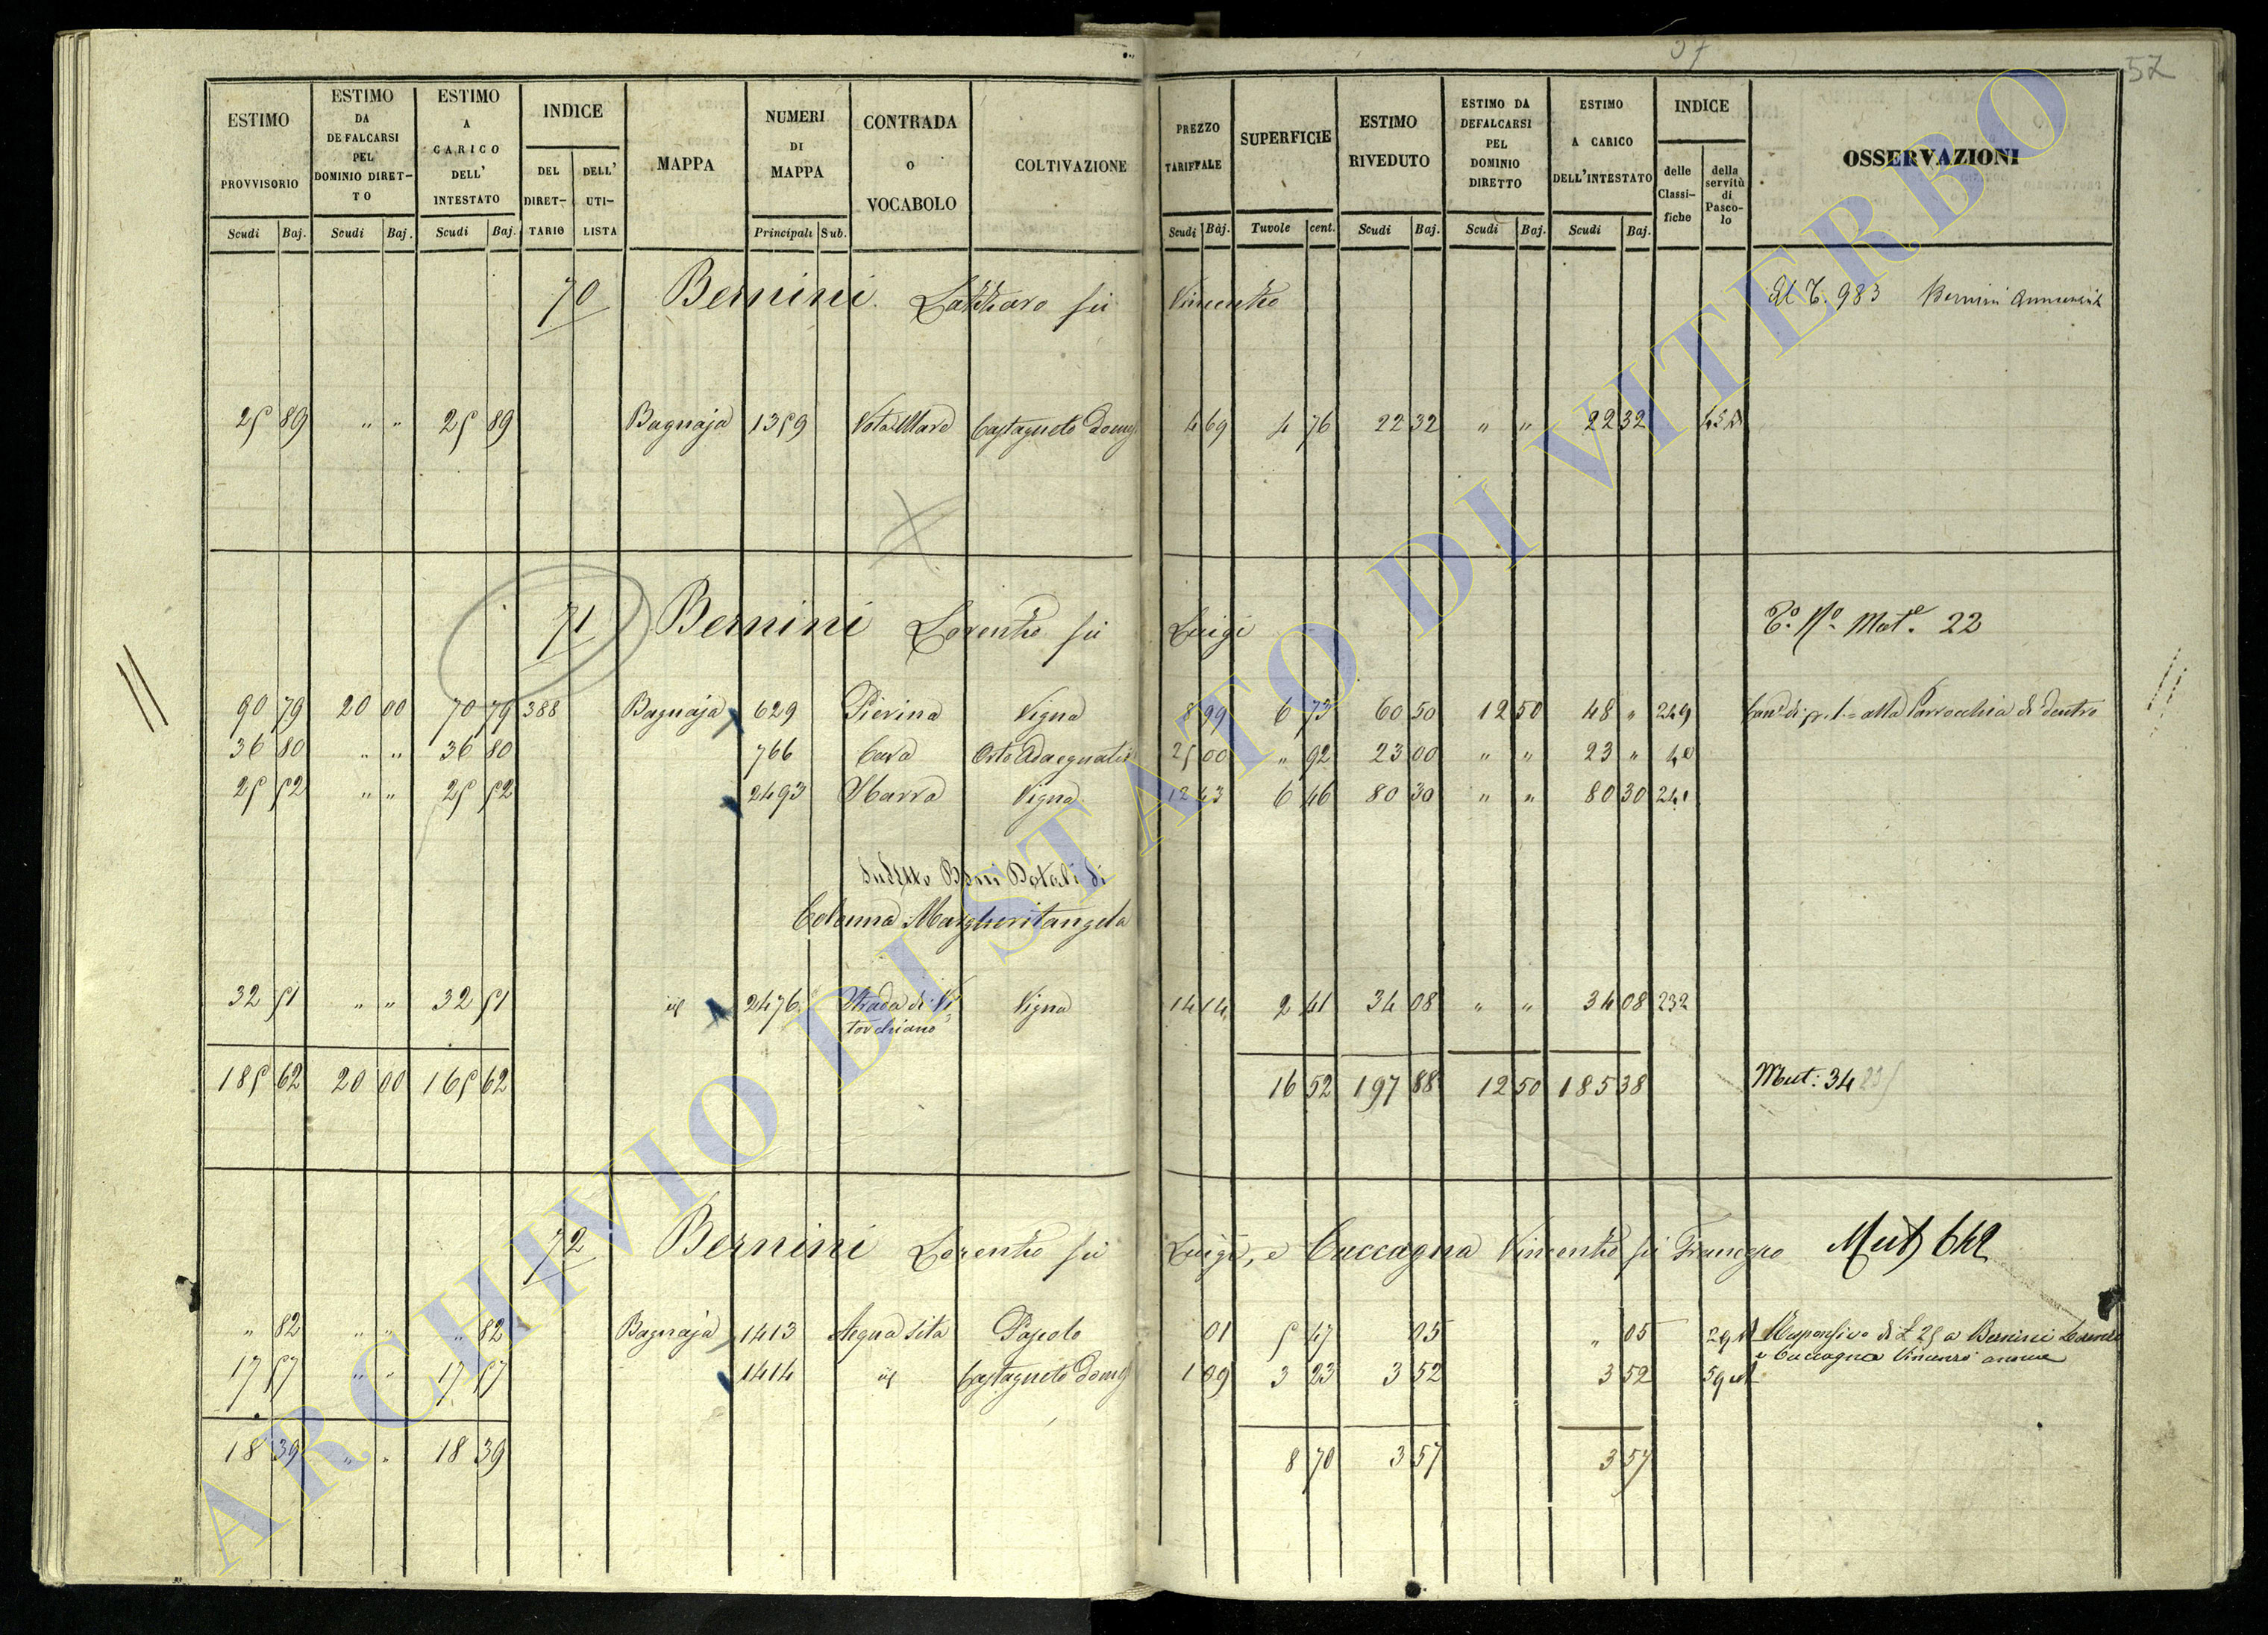 57
ESTIMO PROVVISORIO Scudi Baj.
ESTIMO DA DEFALCARSI PEL DOMINIO DIRET-TO Scudi Baj.
ESTIMO A CARICO DELL' INTESTATO Scudi Baj.
INDICE DEL DIRET-TARIO DELL' UTI-LISTA
MAPPA
NUMERI DI MAPPA Principali Sub.
CONTRADA o VOCABOLO
COLTIVAZIONE
PREZZO TARIFFALE Scudi Baj.
SUPERFICIE Tavole cent.
ESTIMO RIVEDUTO Scudi Baj.
ESTIMO DA DEFALCARSI PEL DOMINIO DIRETTO Scudi Baj.
ESTIMO A CARICO DELL'INTESTATO Scudi Baj.
INDICE delle Classi-fiche della servitù di Pasco-lo
OSSERVAZIONI
70 Bernini Lazzaro fu Vincenzo Al T. 983 Bernini
25 89 " " 25 89 Bagnaja 1359 Castagneto Dom 4 69 4 76 22 32 " " 22 32
71 Bernini Lorenzo fu Luigi 22
90 79 20 00 70 79 388 Bagnaja 629 Pierina Vigna 8 99 6 73 60 50 12 50 48 " 249 alla Parrocchia di dentro
36 80 " " 36 80 766 Cava Orto 25 00 " 92 23 00 " " 23 "
25 52 " " 25 52 2493 Sbarra Vigna 12 43 6 46 80 30 " " 80 30 241
Beni Dotali di
Colonna Margheritangela
32 51 " " 32 51 id 2476 Strada di Vi Vigna 14 14 2 41 34 08 " " 34 08 232
torchiano
185 62 20 00 165 62 16 52 197 88 12 50 185 38 Mut: 34
72 Bernini Lorenzo fu Luigi, e Cuccagna Vincenzo fu Francesco Mut 642
" 82 " " " 82 Bagnaja 1413 Acqua Sita Pascolo 01 5 47 05 " 05 Responsivo di £ 25 a Bernini Lorenzo
e Cuccagna Vincenzo
17 57 " " 17 57 1414 id Castagneto Dom 1 09 3 23 3 52 3 52
18 39 " " 18 39 8 70 3 57 3 57
ARCHIVIO DI STATO DI VITERBO